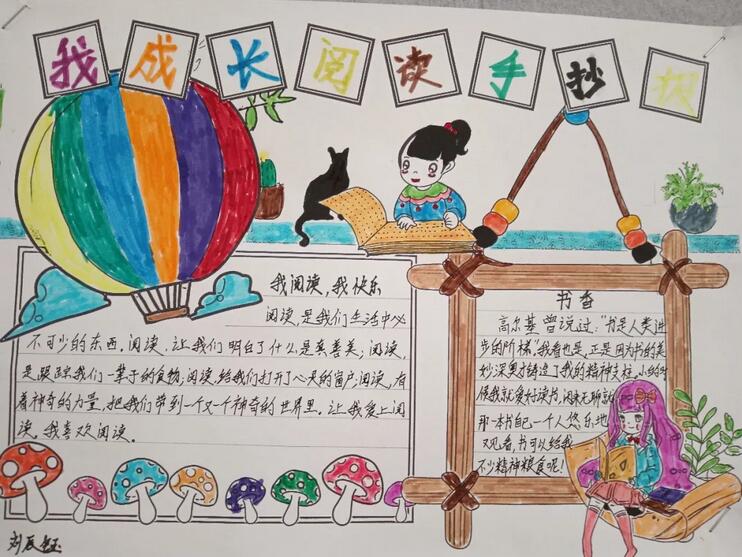 我成长阅读手抄报
我阅读,我快乐
阅读,是我们生活中必
不可少的东西。阅读,让我们明白了什么是真善美;阅读,
是跟踪我们一辈子的食物;阅读,给我们打开了心灵的窗户;阅读,有
着神奇的力量,把我们带到一个又一个神奇的世界里。让我爱上阅
读。我喜欢阅读。
书香
高尔基曾说过:“书是人类进
步的阶梯”我看也是,正是因为书的美
妙深奥才铸造了我的精神支柱。小的时
候我就爱好读书,闲来无聊就
那一本书自己一个人悠乐地
观看,书可以给我
不少精神粮食呢!
刘辰